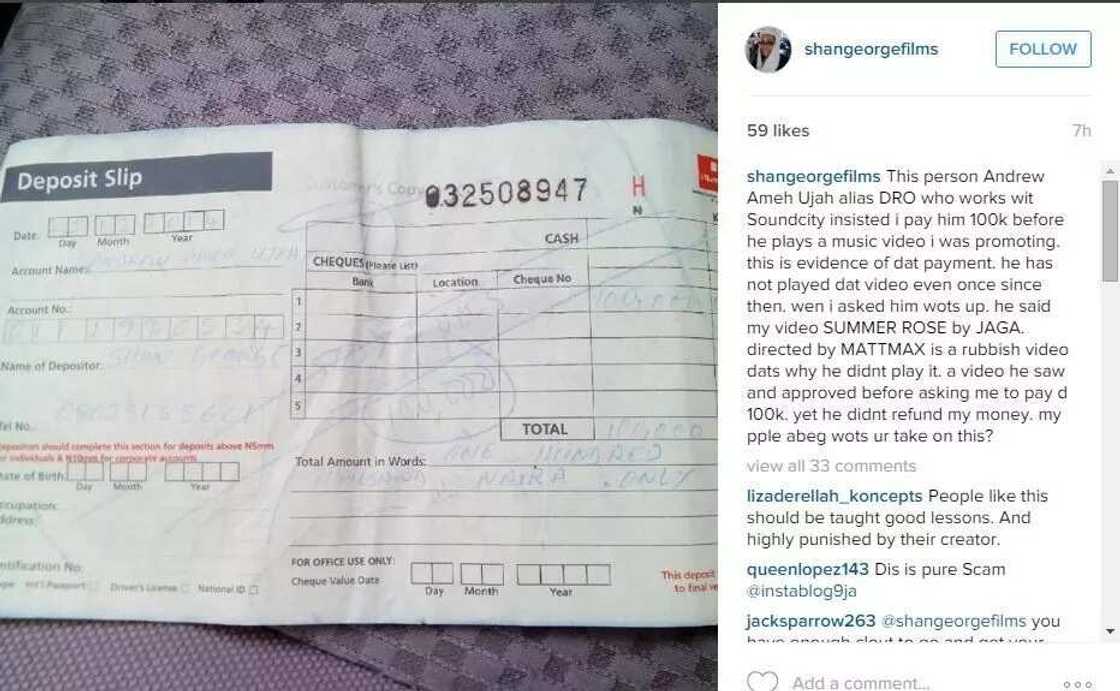 Deposit Slip
Customer's Copy
032508947
H
N
Date:
Day Month Year
Account Name:
UJAH
CASH
CHEQUES (Please List)
Bank Location Cheque No
Account No.:
1
2
3
4
5
Name of Depositor:
SHAN GEORGE
100,000
Tel No.
TOTAL
Total Amount in Words: ONE HUNDRED
THOUSAND NAIRA ONLY
Day Month Year
FOR OFFICE USE ONLY:
Cheque Value Date
Day Month Year
Driver's License National ID
This deposit
to final
shangeorgefilms
FOLLOW
59 likes
7h
shangeorgefilms This person Andrew
Ameh Ujah alias DRO who works wit
Soundcity insisted i pay him 100k before
he plays a music video i was promoting.
this is evidence of dat payment. he has
not played dat video even once since
then. wen i asked him wots up. he said
my video SUMMER ROSE by JAGA.
directed by MATTMAX is a rubbish video
dats why he didnt play it. a video he saw
and approved before asking me to pay d
100k. yet he didnt refund my money. my
pple abeg wots ur take on this?
view all 33 comments
lizaderellah_koncepts People like this
should be taught good lessons. And
highly punished by their creator.
queenlopez143 Dis is pure Scam
@instablog9ja
jacksparrow263 @shangeorgefilms you
have enough clout to go and get your
Add a comment...